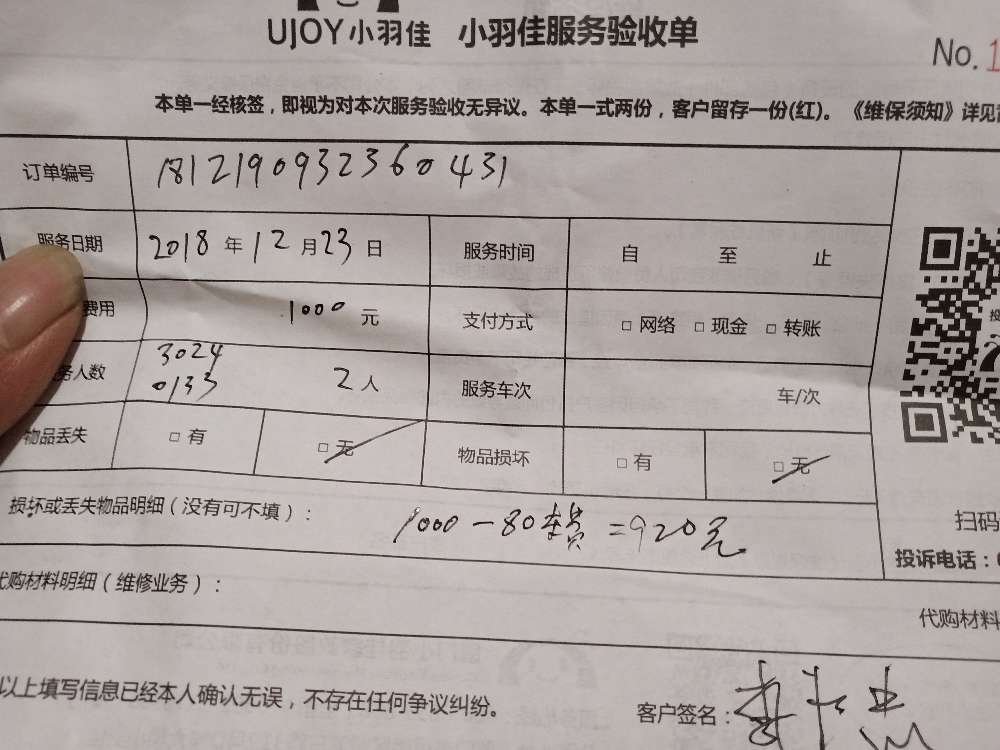 UJOY小羽佳 小羽佳服务验收单
No. 1
本单一经核签，即视为对本次服务验收无异议。本单一式两份，客户留存一份(红)。《维保须知》详见
订单编号 181219093236 0431
服务日期 2018 年 12 月 23 日 服务时间 自 至 止
费用 1000 元 支付方式 □ 网络 □ 现金 □ 转账
务人数 3024 0133 2 人 服务车次 车/次
物品丢失 □ 有 □ 无 物品损坏 □ 有 □ 无
损坏或丢失物品明细（没有可不填）： 1000-80车费=920元
扫码
投诉电话：
代购材料明细（维修业务）：
代购材料
以上填写信息已经本人确认无误，不存在任何争议纠纷。
客户签名：